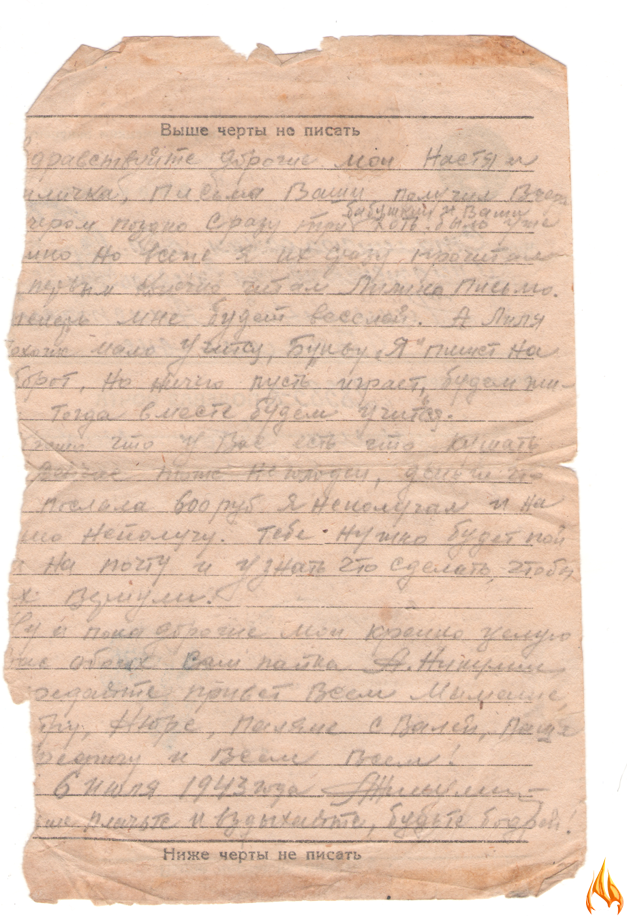 Выше черты не писать
дравствуйте дорогие мои Настя и
личка, Письма Ваши получил Вче
чером поздно сразу три бабушкин и Ваши хоть было уже
мно но всеже я их сразу прочитал
первым конечно читал Лилино Письмо.
теперь мне будет веселей. А Лиля
охоже мало учится, Букву "Я" пишет на
борот, но ничего пусть играет, будем жи-
Тогда вместе будем учится.
что у Вас есть что кушать
сейчас тоже неголоден, деньги
послала 800 руб я неполучал и на
но неполучу. Тебе нужно будет пой
на почту и узнать что сделать, чтобы
х вернули.
Ну и пока дорогие мои крепко целую
вас обоих ваш папка А. Никулин
редавайте привет Всем Мамаше,
Нюре, Поляне с Валей, Паше
и Всем Всем!
6 июля 1943 года АНикулин
не плачьте и вздыхайте, будьте бодрей!
Ниже черты не писать